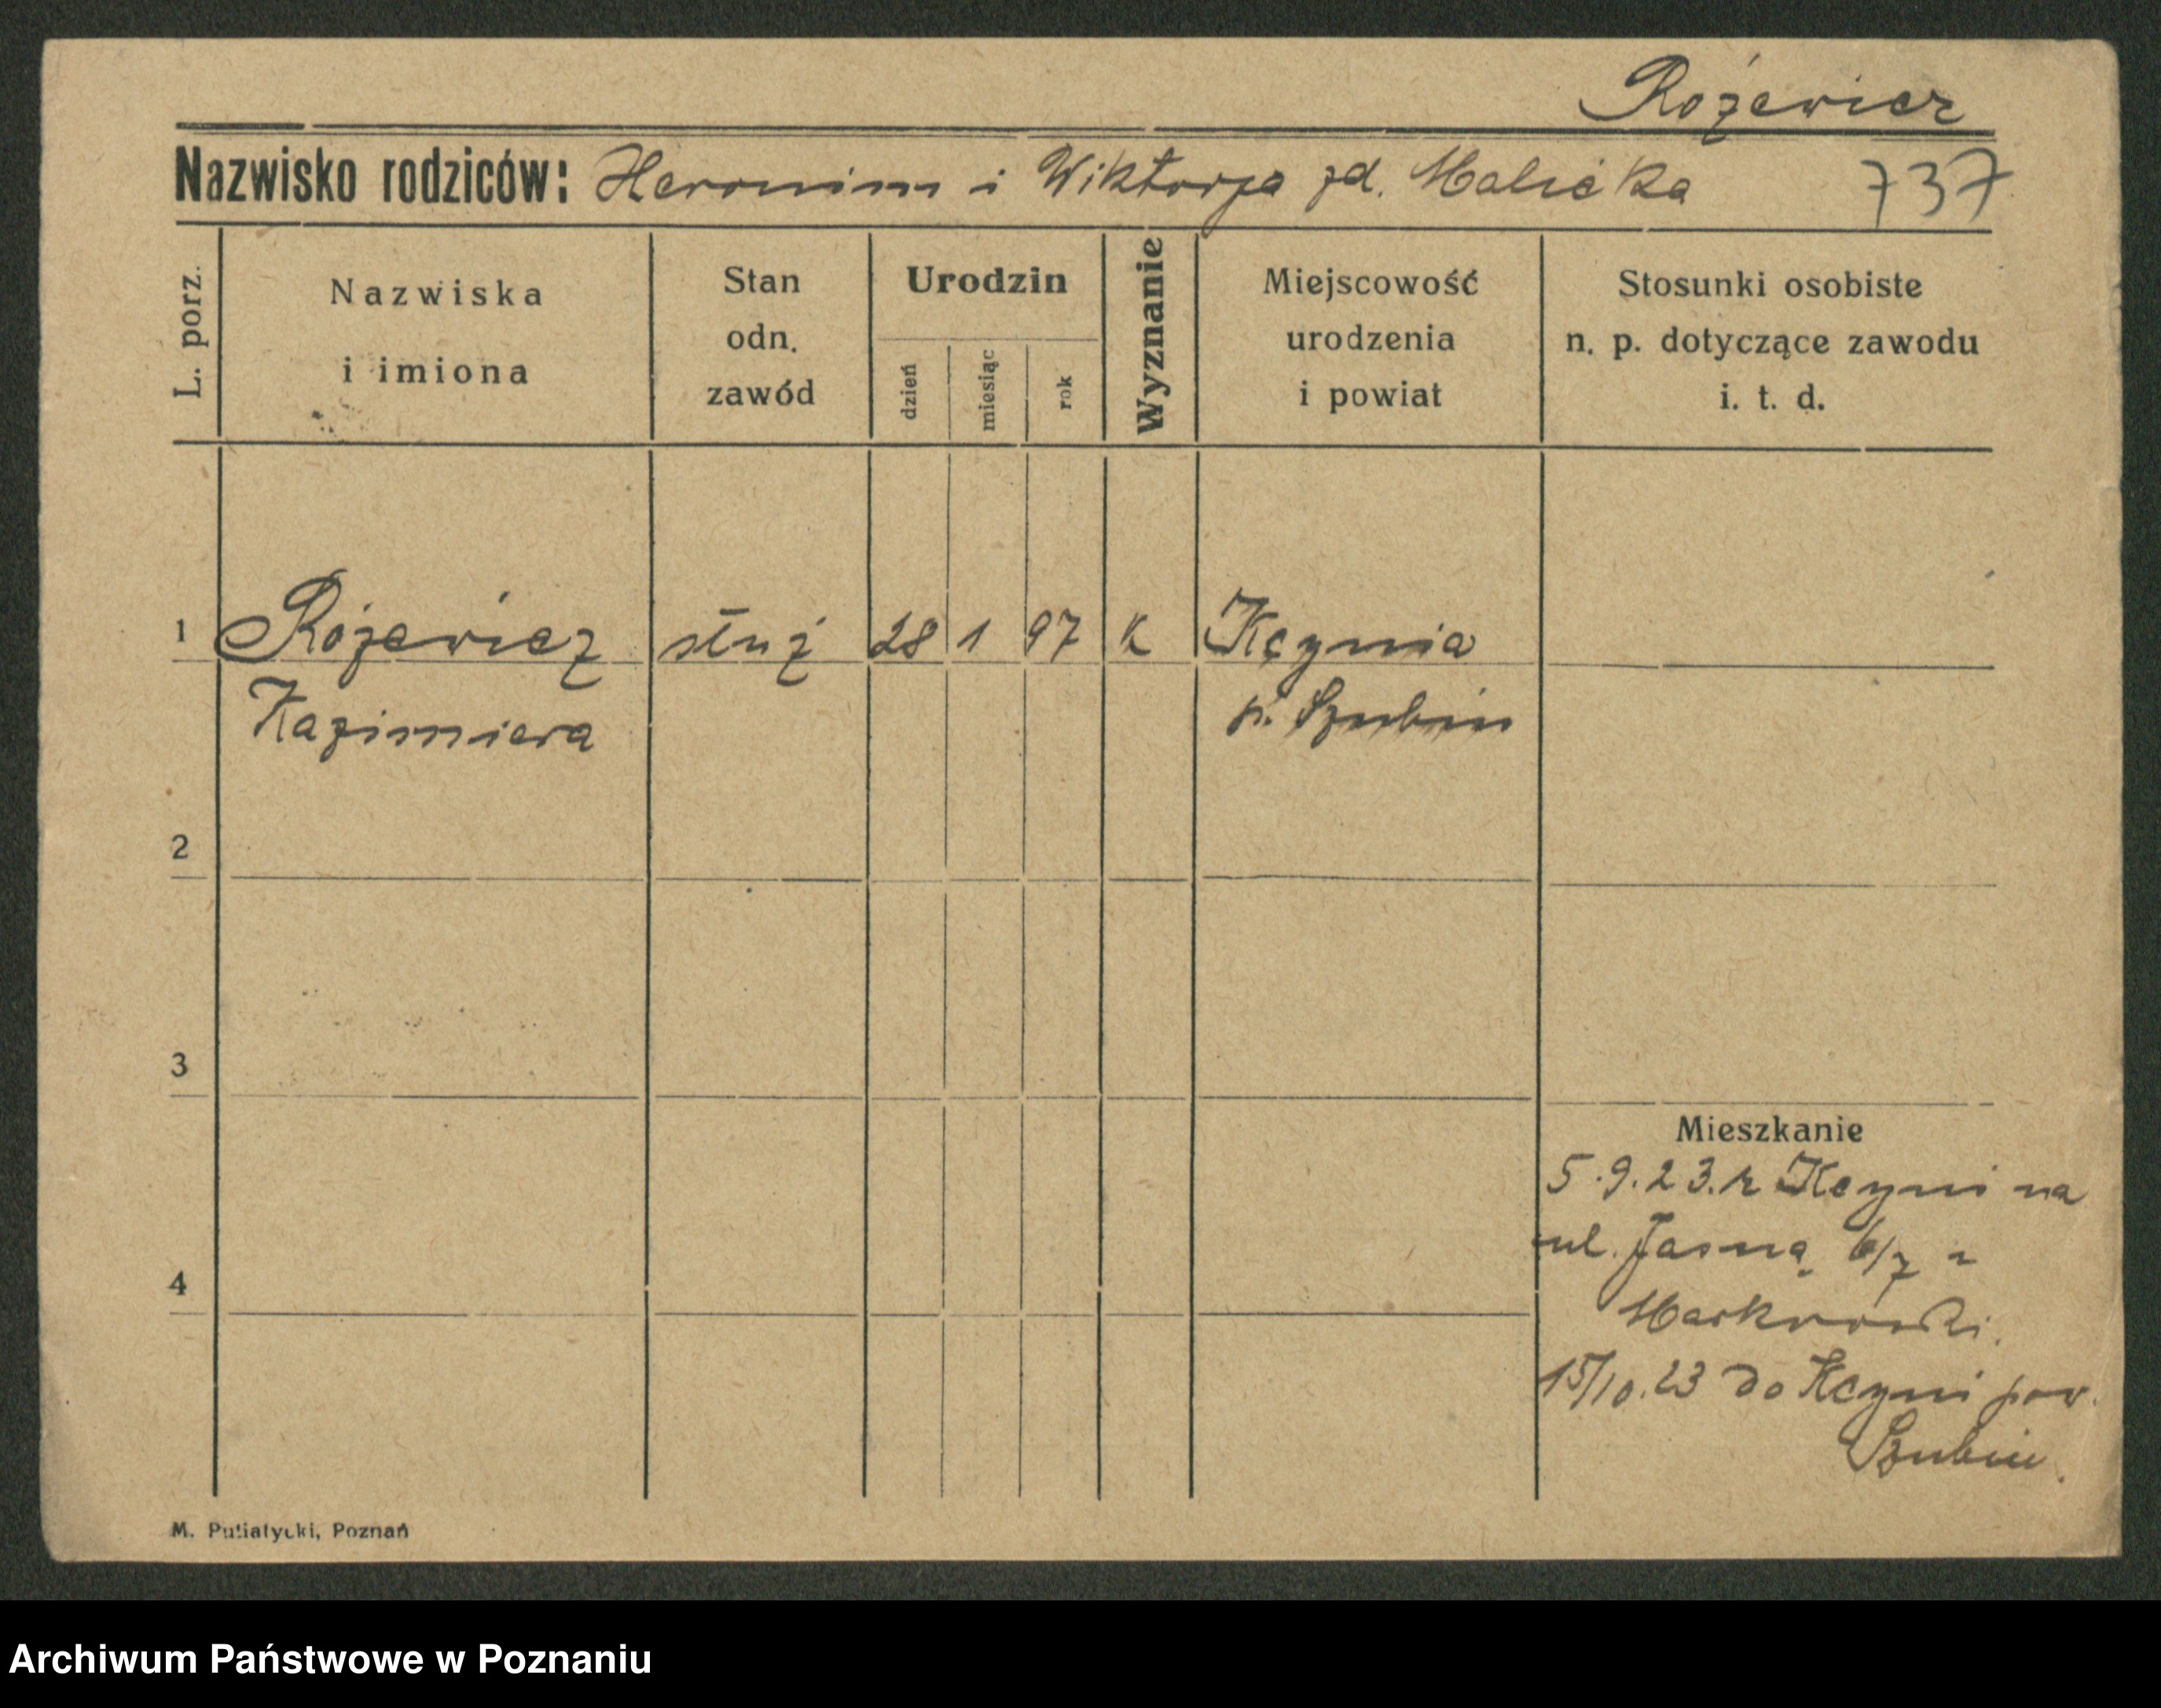 Rożewicz
Nazwisko rodziców: Heronim i Wiktorja zd. Malicka 737
L. porz.
Nazwiska
i imiona
Stan
odn.
zawód
Urodzin
dzień
miesiąc
rok
Wyznanie
Miejscowość
urodzenia
i powiat
Stosunki osobiste
n. p. dotyczące zawodu
i. t. d.
1 Różewicz służ 28 1 97 K Kcynia
Kazimiera p. Szubin
2
3
Mieszkanie
5.9.23. z Kcyni na
ul. Jasną 6/7 u
4
15/10.23 do Kcyni pow.
Szubin.
M. Putiatycki, Poznań
Archiwum Państwowe w Poznaniu